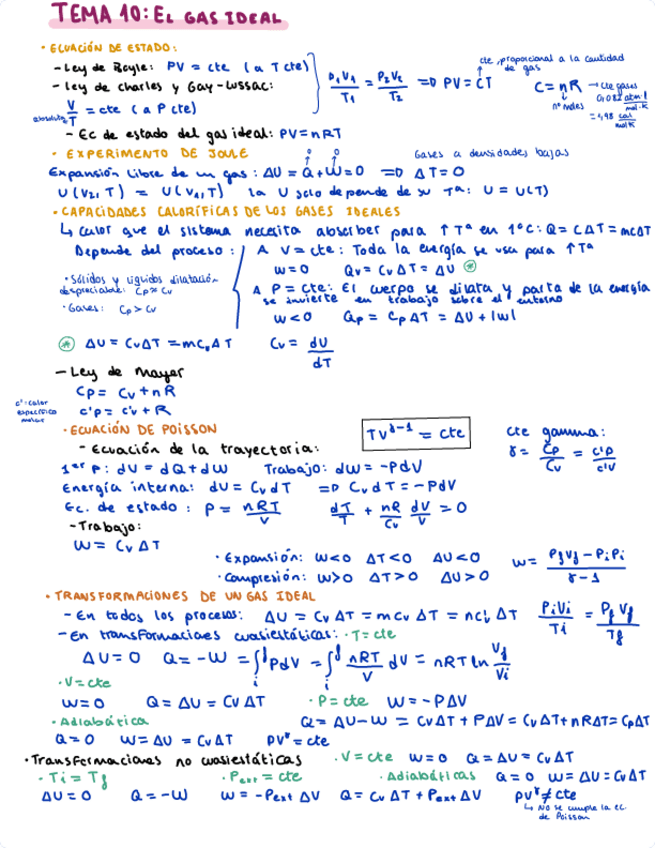 TEMA 10: EL GAS IDEAL
· ECUACIÓN DE ESTADO:
- Ley de Boyle: PV = cte (a T cte)
- Ley de Charles y Gay-Lussac:
V/T = cte (a P cte)
absoluta
P₁V₁/T₁ = P₂V₂/T₂ => PV = CT
cte, proporcional a la cantidad de gas
C = nR → cte gases
nº moles
0,082 atm·l/mol·K
= 1,98 cal/mol K
- Ec de estado del gas ideal: PV = nRT
· EXPERIMENTO DE JOULE
Gases a densidades bajas
Expansión libre de un gas: ΔU = Q + W = 0 => ΔT = 0
0 0
U(V₂, T) = U(V₁, T) la U solo depende de su Tª: U = U(T)
· CAPACIDADES CALORÍFICAS DE LOS GASES IDEALES
↳ calor que el sistema necesita absorber para ↑Tª en 1ºC: Q = CΔT = mcΔT
Depende del proceso:
A V = cte: Toda la energía se usa para ↑Tª
W = 0 Qv = CvΔT = ΔU *
· Sólidos y líquidos dilatación despreciable: Cp ≈ Cv
· Gases: Cp > Cv
A P = cte: El cuerpo se dilata y parte de la energía
se invierte en trabajo sobre el entorno
W < 0 Qp = CpΔT = ΔU + |W|
* ΔU = CvΔT = mcvΔT Cv = dU/dT
- Ley de Mayer
Cp = Cv + nR
c'p = c'v + R
c' = calor específico molar
· ECUACIÓN DE POISSON
TV^γ-1 = cte
cte gamma:
γ = Cp/Cv = c'p/c'v
- Ecuación de la trayectoria:
1er P: dU = dQ + dW Trabajo: dW = -PdV
Energía interna: dU = CvdT => CvdT = -PdV
Ec. de estado: P = nRT/V dT/T + nR/Cv dV/V = 0
- Trabajo:
W = CvΔT
· Expansión: W<0 ΔT<0 ΔU<0
· Compresión: W>0 ΔT>0 ΔU>0
W = PfVf - PiPi/γ-1
· TRANSFORMACIONES DE UN GAS IDEAL
- En todos los procesos: ΔU = CvΔT = mcvΔT = nc'vΔT PiVi/Ti = PfVf/Tf
- En transformaciones cuasiestáticas: · T = cte
ΔU = 0 Q = -W = ∫ᵢᶠ PdV = ∫ᵢᶠ nRT/V dV = nRT ln Vf/Vi
· V = cte
W = 0 Q = ΔU = CvΔT
· P = cte W = -PΔV
Q = ΔU - W = CvΔT + PΔV = CvΔT + nRΔT = CpΔT
· Adiabática
Q = 0 W = ΔU = CvΔT PV^γ = cte
· Transformaciones no cuasiestáticas
· V = cte W = 0 Q = ΔU = CvΔT
· Ti = Tf
ΔU = 0 Q = -W
· Pext = cte
W = -PextΔV Q = CvΔT + PextΔV
· Adiabáticas Q = 0 W = ΔU = CvΔT
PV^γ ≠ cte
↳ No se cumple la ec. de Poisson